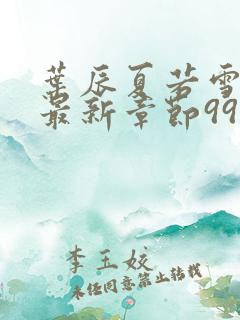 葉辰夏若雪
最新章節99
李玉姣
未经同意禁止转载